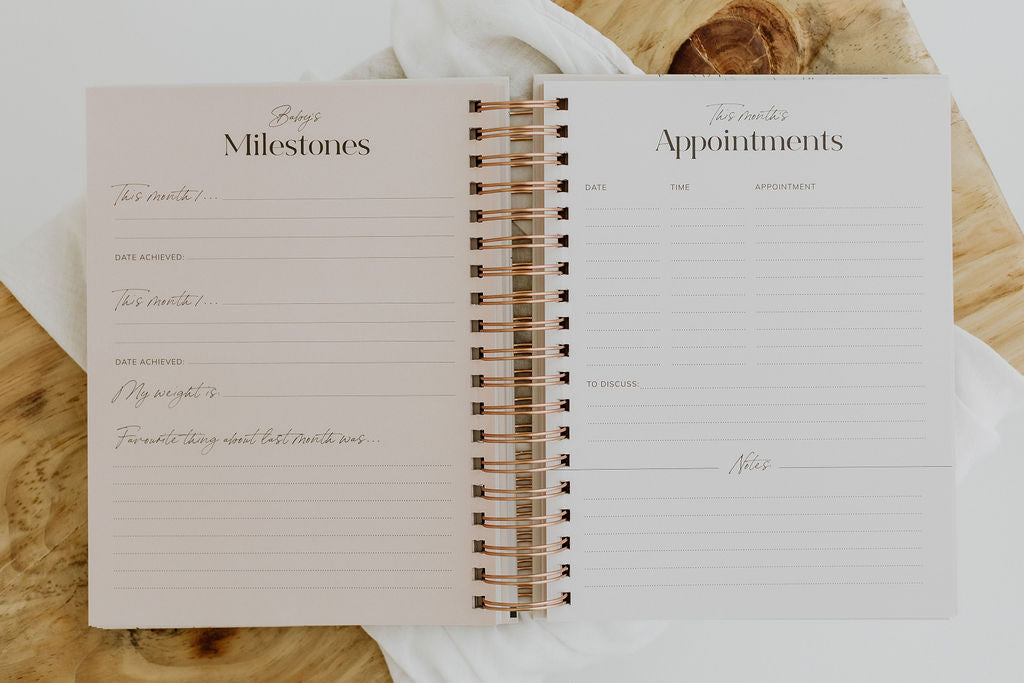 Baby's
Milestones
This month I...
DATE ACHIEVED:
This month I...
DATE ACHIEVED:
My weight is:
Favourite thing about last month was...
This month's
Appointments
DATE TIME APPOINTMENT
TO DISCUSS:
Notes: